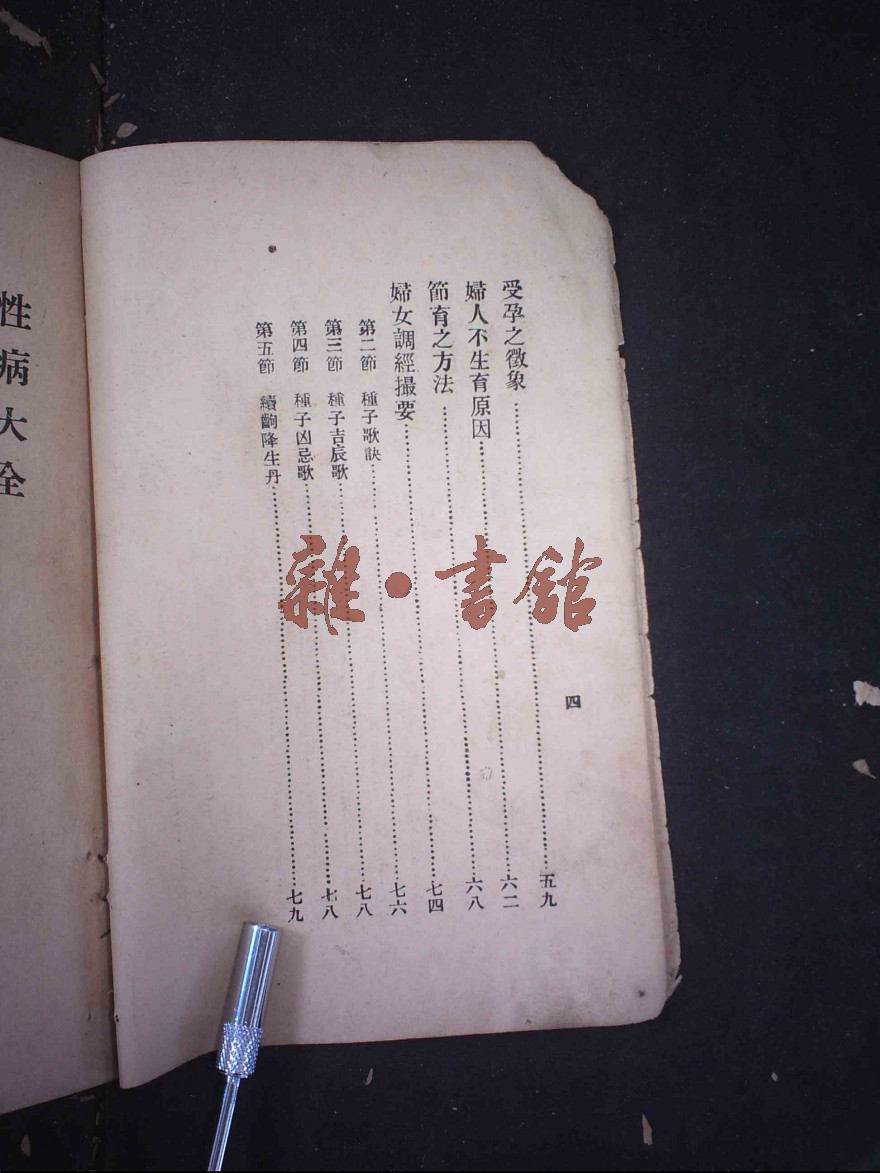 四
受孕之徵象……五九
婦人不生育原因……六二
節育之方法……六八
婦女調經撮要……七四
第二節 種子歌訣……七六
第三節 種子吉辰歌……七八
第四節 種子凶忌歌……七八
第五節 續齣降生丹……七九
性病大全
雜·書館